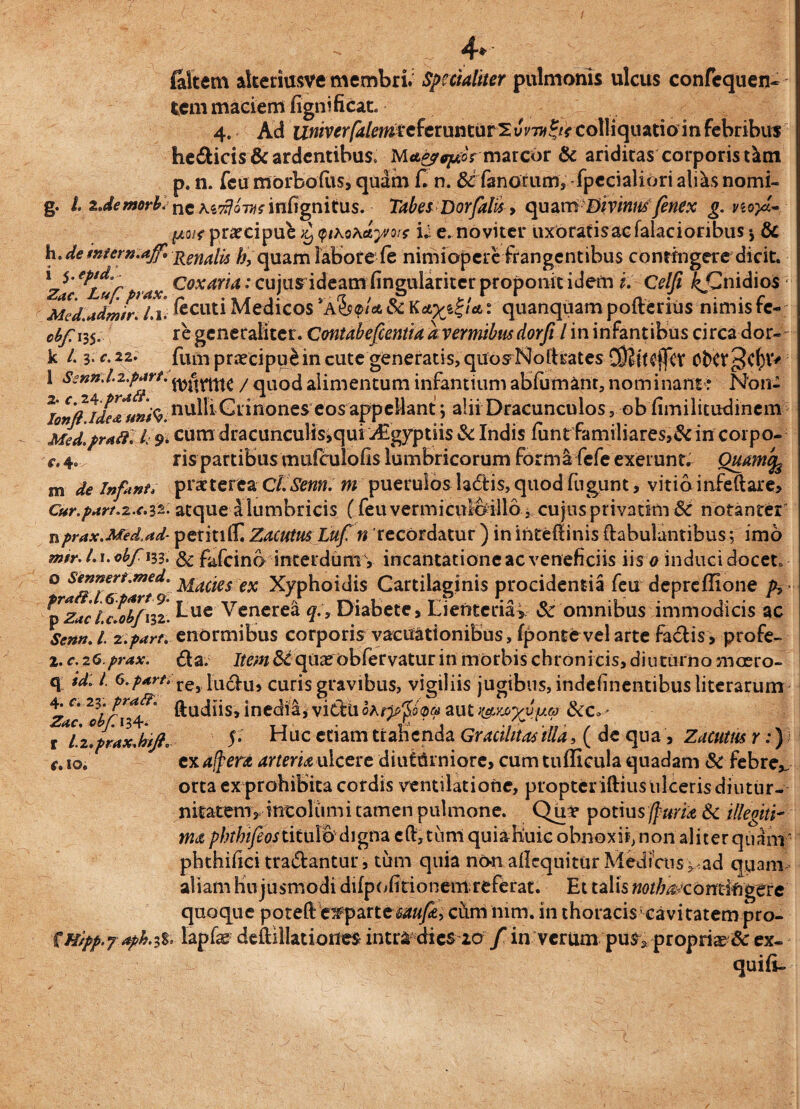 4.
saltem alteriusve membri. Specialiter pulmonis ulcus consequen-
tem maciem significat.
4. Ad Universalem referuntur Σύντηξις colliquatio in febribus
hecticis & ardentibus. Μαρασμὸς marcor & ariditas corporis tàm
p. n. seu morbosus, quàm s. n. & sanorum, specialiori aliàs nomi-
g. l. 2. de morb. ne λεπτότης insignitus. Tabes Dorsalis, quam Divinus senex g. νεογά-
μοις præcipuè ϗ φιλολάγνοις i. e. noviter uxoratis ac salacioribus; &
h. de intern. aff. Renalis h, quam labore se nimioperè frangentibus contingere dicit.
i 5. epid. Coxaria: cujus ideam singulariter proponit idem i. Celsi k Cnidios
Zac. Lus. prax.
Med. admir. l.1. secuti Medicos Ἀτροφία & Καχεξία: quanquam posterius nimis se-
obs. 135. rè generaliter. Contabescentia à vermibus dorsi l in infantibus circa dor-
k l. 3. c. 22. sum præcipuè in cute generatis, quos Nostrates Miteſſer oder Zehr-
l Senn. l. 2. part. würme / quod alimentum infantium absumant, nominant: Non-
2. c. 24. pract.
Ionst. Idea univ. nulli Crinones eos appellant; alii Dracunculos, ob similitudinem
Med. pract. l. 9. cum dracunculis, qui Ægyptiis & Indis sunt familiares, & in corpo-
c. 4. ris partibus musculosis lumbricorum formâ sese exerunt. Quamq́;
m de Infant. præterea Cl. Senn. m puerulos lactis, quod sugunt, vitiô infestare,
Cur. part. 2. c. 32. atque â lumbricis (seu vermiculô illô, cujus privatim & notanter
n prax. Med. ad- peritiss. Zacutus Lus. n recordatur) in intestinis stabulantibus; imò
mir. l. 1. obs. 133. & fascinô interdum, incantatione ac veneficiis iis o induci docet.
o Sennert. med. Macies ex Xyphoidis Cartilaginis procidentiâ seu depressione p,
pract. l. 6. part 9.
p Zac l. c. obs. 132. Lue Venereâ q., Diabete, Lienteriâ, & omnibus immodicis ac
Senn. l. 2. part. enormibus corporis vacuationibus, sponte vel arte factis, profe-
2. c. 26. prax. cta. Item & quæ observatur in morbis chronicis, diuturno mœro-
q id. l. 6. part. re, luctu, curis gravibus, vigiliis jugibus, indefinentibus literarum
4. c. 23. pract. studiis, inediâ, victu ὀλιγοτρόφῳ aut κακοχύμῳ &c.
Zac. obs. 134.
r l. 2. prax. hist. 5. Huc etiam trahenda Gracilitas illa, (de qua, Zacutus r:)
c. 10. ex asperæ arteriæ ulcere diuturniore, cum tussicula quadam & febre,
orta ex prohibita cordis ventilatione, propter istius ulceris diutur-
nitatem, incolumi tamen pulmone. Quæ potius spuriæ & illegiti-
mæ phthiseos titulô digna est, tùm quia huic obnoxii, non aliter quàm
phthisici tractantur, tùm quia non assequitur Medicus, ad quam
aliam hujusmodi dispositionem referat. Et talis notha contingere
quoque potest ex parte causæ, cùm nim. in thoracis cavitatem pro-
s Hipp. 7 aph. 38. lapsæ destillationes intrà dies 20 s in verum pus, propriæ & ex-
quisi-